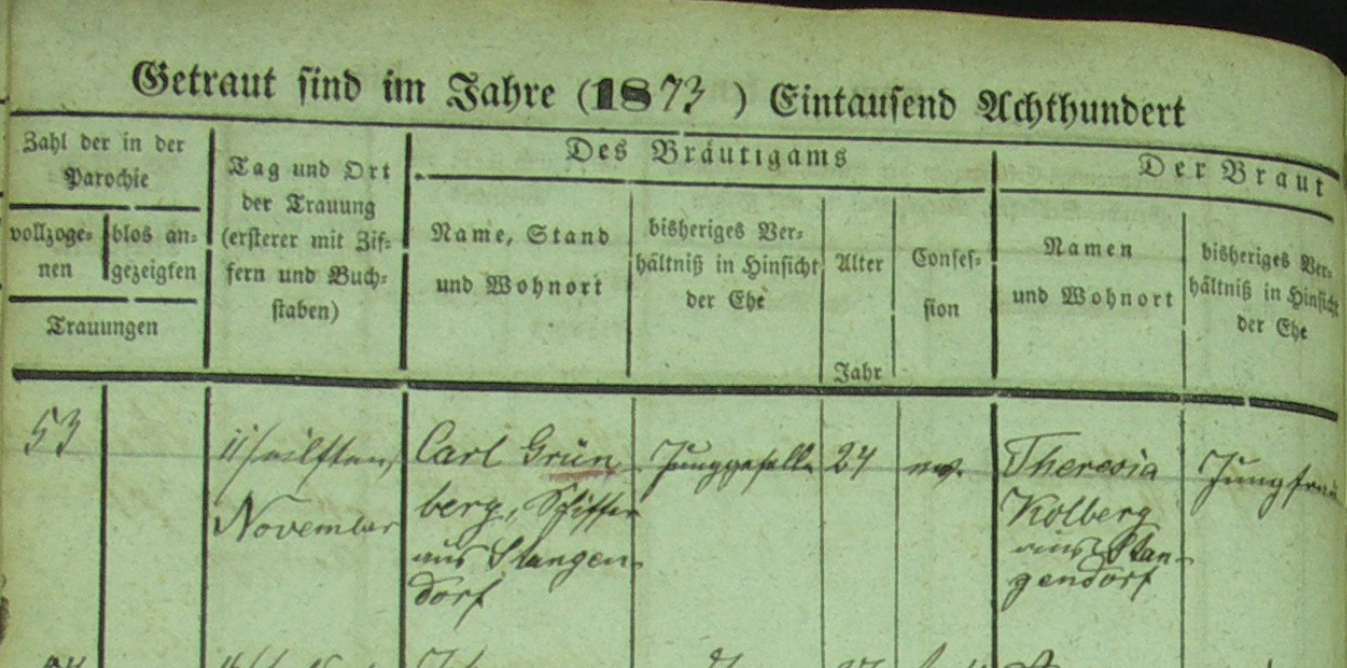 Getraut sind im Jahre (1873) Eintausend Achthundert
Zahl der in der
Parochie
vollzoge-
nen
blos an-
gezeigten
Trauungen
Tag und Ort
der Trauung
(ersterer mit Zif-
fern und Buch-
staben)
Des Bräutigams
Name, Stand
und Wohnort
bisheriges Ver-
hältniß in Hinsicht
der Ehe
Alter
Jahr
Confes-
sion
Der Braut
Namen
und Wohnort
bisheriges Ver-
hältniß in Hinsicht
der Ehe
53
11/eilften/
November
Carl Grün
berg, Schiffer
aus Stangen-
dorf
Junggeselle
24
ev.
Theresia
Kolberg
aus Stan-
gendorf
Jungfrau